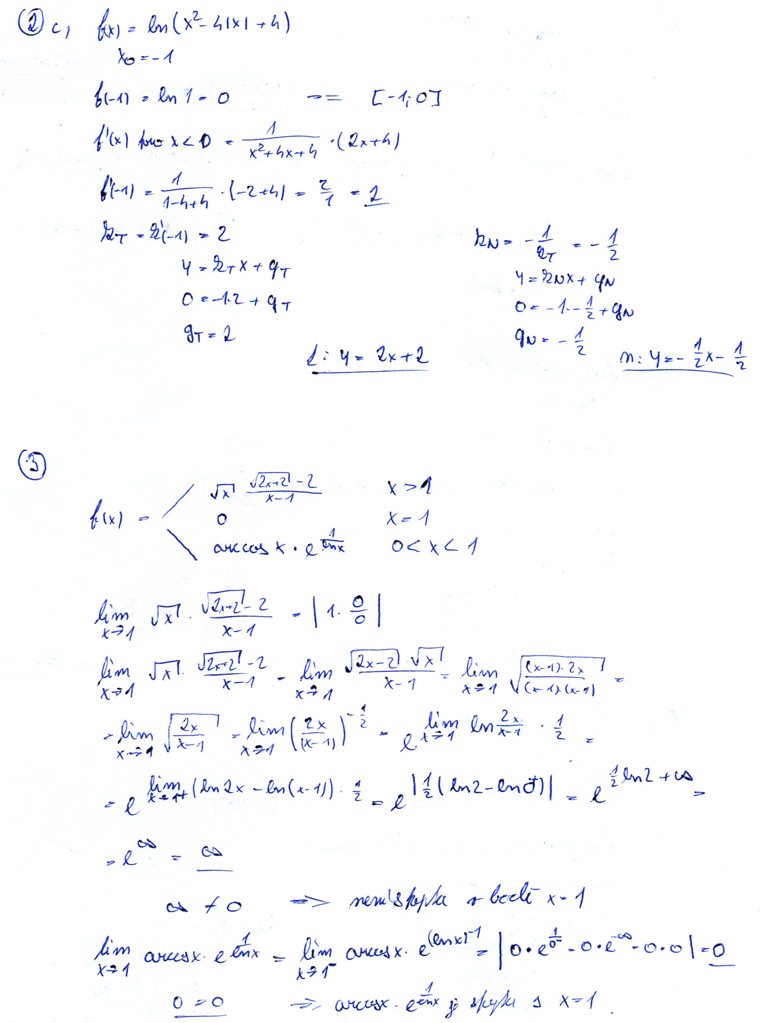 ② c, f(x) = ln(x² - 4|x| + 4)
x₀ = -1
f(-1) = ln 1 = 0 [-1; 0]
f'(x) pro x < 0 = 1/(x²+4x+4) · (2x+4)
f'(-1) = 1/(1-4+4) · (-2+4) = 2/1 = 2
k_T = k'(-1) = 2
y = k_T x + q_T
0 = -1·2 + q_T
q_T = 2
t: y = 2x + 2
k_N = -1/k_T = -1/2
y = k_N x + q_N
0 = -1·-1/2 + q_N
q_N = -1/2
n: y = -1/2 x - 1/2
③
f(x) = √x (√(2x+2) - 2)/(x-1) x > 1
0 x = 1
arccos x · e^(1/ln x) 0 < x < 1
lim x→1 √x · (√(2x+2) - 2)/(x-1) = |1 · 0/0|
lim x→1 √x · (√(2x+2) - 2)/(x-1) = lim x→1 (√(2x-2) · √x)/(x-1) = lim x→1 √((x-1)·2x/((x-1)·(x-1))) =
= lim x→1 √(2x/(x-1)) = lim x→1 (2x/(x-1))^(-1/2) = e^(lim x→1 ln 2x/(x-1) · 1/2) =
= e^(lim x→1+ (ln 2x - ln(x-1)) · 1/2) = e^|1/2 (ln 2 - ln 0⁺)| = e^(1/2 ln 2 + ∞) =
= e^∞ = ∞
∞ ≠ 0 => není v bodě x = 1
lim x→1 arccos x · e^(1/ln x) = lim x→1⁻ arccos x · e^((ln x)^-1) = |0 · e^(1/0⁻) = 0 · e^(-∞) = 0 · 0| = 0
0 = 0 => arccos x · e^(1/ln x) je x = 1